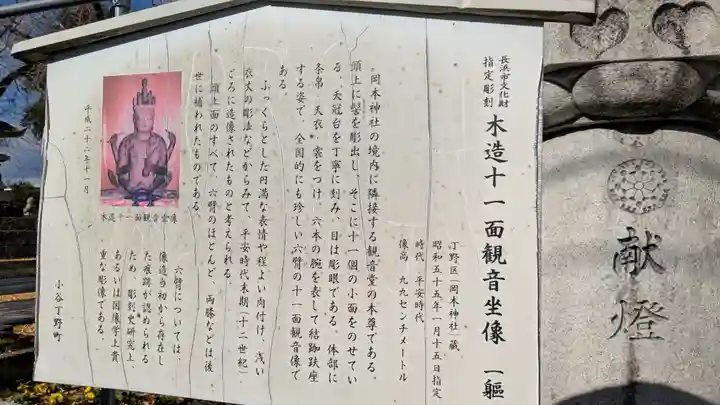 長浜市文化財
指定彫刻
木造十一面観音坐像 一軀
丁野区(岡本神社)蔵
昭和五十五年一月十五日指定
時代 平安時代
像高 九九センチメートル
岡本神社の境内に隣接する観音堂の本尊である。
頭上に髻を彫出し、そこに十一個の小面をのせてい
る。天冠台を丁寧に刻み、目は彫眼である。体部に
条帛・天衣・裳をつけ、六本の腕を表して結跏趺座
する姿で、全国的にも珍しい六臂の十一面観音像で
ある。
ふっくらとした円満な表情や程よい肉付け、浅い
衣文の彫法などからみて、平安時代末期(十二世紀)
ごろに造像されたものと考えられる。
頭上面のすべて、六臂のほとんど、両膝などは後
世に補われたものである。
六臂については、
像造当初から存在し
た痕跡が認められる
ため、彫刻史研究上
あるいは図像学上貴
重な彫像である。
木造十一面観音坐像
平成二十一年十一月
小谷丁野町
献燈